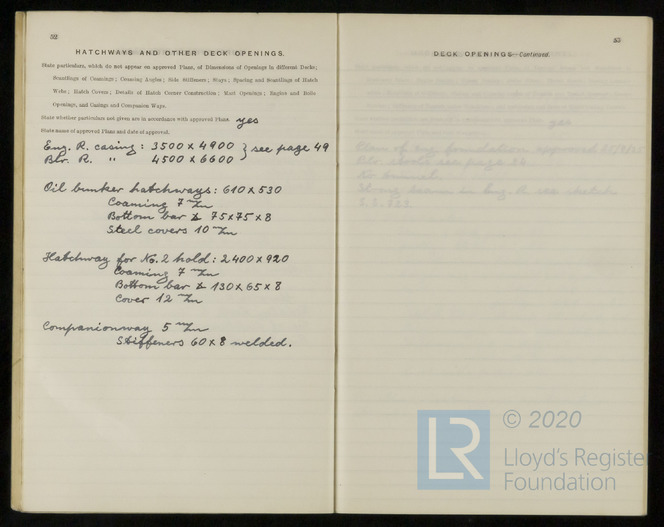 52
HATCHWAYS AND OTHER DECK OPENINGS.
State particulars, which do not appear on approved Plans, of Dimensions of Openings in different Decks;
Scantlings of Coamings; Coaming Angles; Side Stiffeners; Stays; Spacing and Scantlings of Hatch
Webs; Hatch Covers; Details of Hatch Corner Construction; Mast Openings; Engine and Boiler
Openings, and Casings and Companion Ways.
State whether particulars not given are in accordance with approved Plans. yes
State name of approved Plans and date of approval.
Eng. R. casing: 3500 x 4900 } see page 49
Blr. R. " 4500 x 6600
Oil bunker hatchways: 610 x 530
Coaming 7 m/m
Bottom bar 75x75x8
Steel covers 10 m/m
Hatchway for No. 2 hold: 2400 x 920
Coaming 7 m/m
Bottom bar 130 x 65 x 8
Cover 12 m/m
Companionway 5 m/m
Stiffeners 60 x 8 welded.
53
DECK OPENINGS—Continued.
LR
© 2020
Lloyd's Register
Foundation